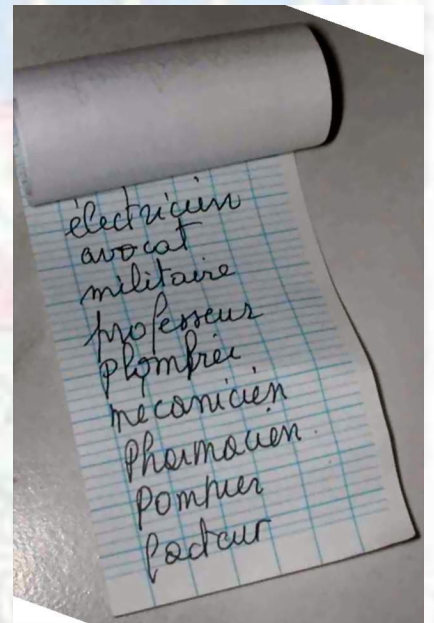 électricien
avocat
militaire
professeur
plombier
mecanicien
pharmacien
pompier
facteur